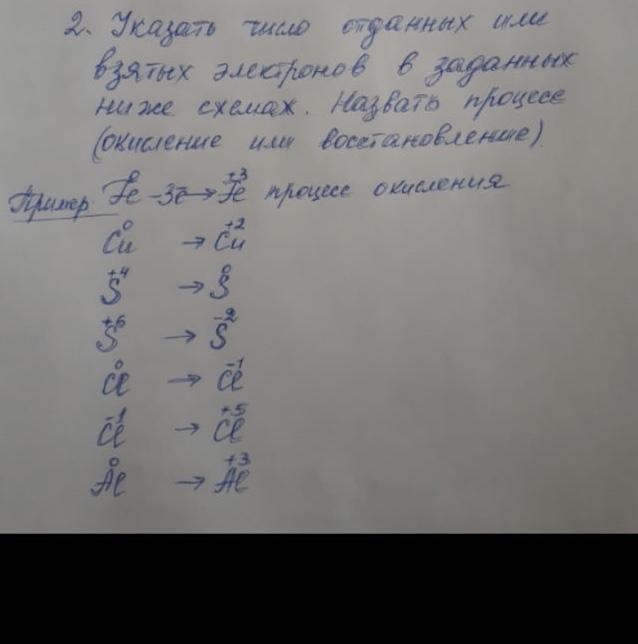 2. Указать число отданных или
взятых электронов в заданных
ниже схемах. Назвать процесс
(окисление или восстановление).
Пример Fe⁰ -3e → Fe⁺³ процесс окисления
Cu⁰ → Cu⁺²
S⁺⁴ → S⁰
S⁺⁶ → S⁻²
Cl⁰ → Cl⁻¹
Cl⁻¹ → Cl⁺⁵
Al⁰ → Al⁺³